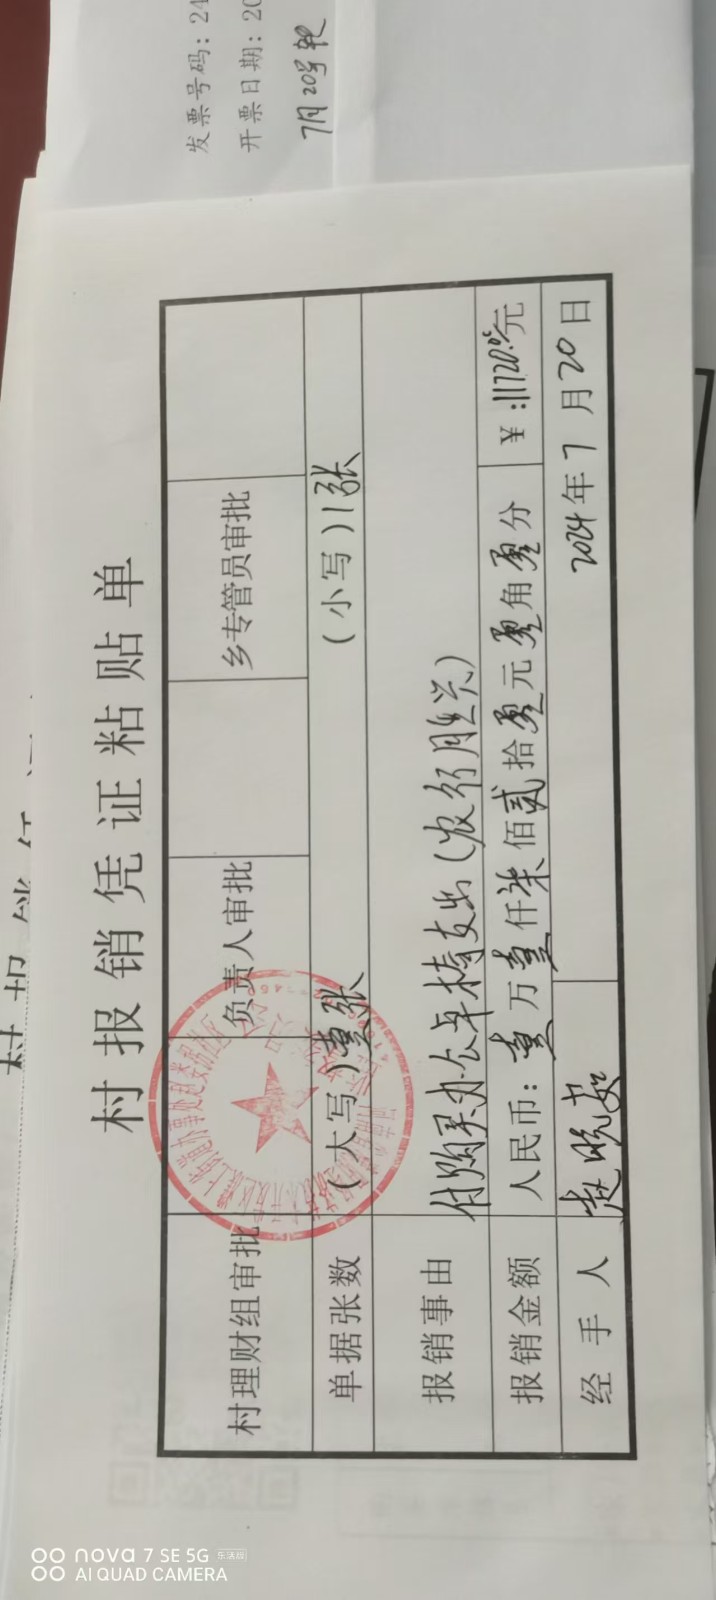 发票号码：24
开票日期：20
7月20号
村报销凭证粘贴单
村理财组审批 负责人审批 乡专管员审批
单据张数 （大写）壹张 （小写）1张
报销事由 付购买办公耗材支出（农行胜兴）
报销金额 人民币：壹万壹仟柒佰贰拾零元零角零分 ¥：11720.00元
经手人 赵晓茹 2024年7月20日
nova 7 SE 5G 乐活版
AI QUAD CAMERA